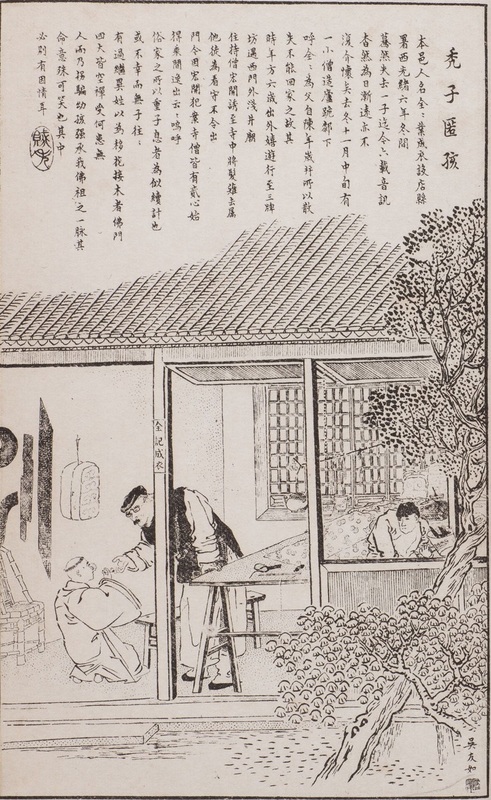 禿子匿孩
本邑人名全二業成衣設店縣
署西光緒六年冬間
驀然失去一子迄今二載音訊
杳然為日漸遠亦不
復介懷矣去冬十一月中旬有
一小僧造廬下
呼全二為父自陳年歲并所以散
失不能回家之故其
時年方六歲出外嬉遊行至三牌
坊遇西門外淺井廟
住持僧宏開誘至寺中將髮薙去屬
他徒為看守不令出
門今因宏開犯案寺僧皆有貳心始
得乘間逃出云云嗚呼
俗家之所以重子息者為似續計也
或不幸而無子往往
有過繼異姓以為移花接木者佛門
四大皆空禪愛何患無
人而乃拐騙幼孩强承我佛祖之一脉其
命意殊可笑也其中
必別有因情耳
全記成衣
吳友如